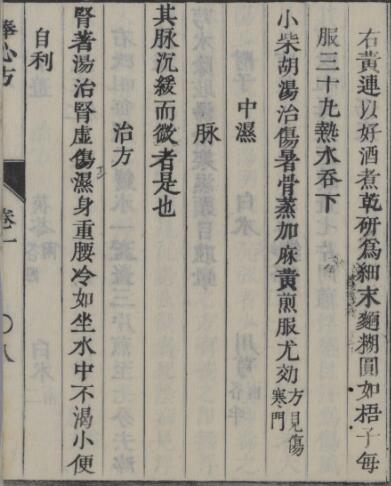 右黃連以好酒煮乾研爲細末麵糊圓如梧子每
服三十九熱水吞下
小柴胡湯治傷暑骨蒸加麻黃煎服尤効方見傷寒門
中濕
脉
其脉沉緩而微者是也
治方
腎著湯治腎虛傷濕身重腰冷如坐水中不渴小便
自利
心方
卷一
〇八